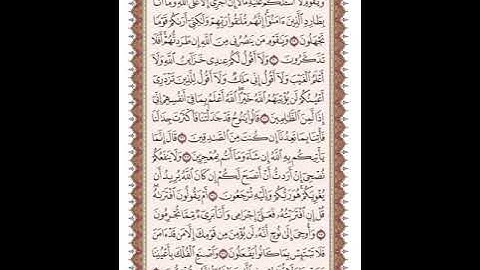 وَيَٰقَوْمِ لَآ أَسْـَٔلُكُمْ عَلَيْهِ مَالًا إِنْ أَجْرِىَ إِلَّا عَلَى ٱللَّهِ وَمَآ أَنَا۠
بِطَارِدِ ٱلَّذِينَ ءَامَنُوٓا۟ إِنَّهُم مُّلَٰقُوا۟ رَبِّهِمْ وَلَٰكِنِّىٓ أَرَىٰكُمْ قَوْمًا
تَجْهَلُونَ ٢٩ وَيَٰقَوْمِ مَن يَنصُرُنِى مِنَ ٱللَّهِ إِن طَرَدتُّهُمْ أَفَلَا
تَذَكَّرُونَ ٣٠ وَلَآ أَقُولُ لَكُمْ عِندِى خَزَآئِنُ ٱللَّهِ وَلَآ
أَعْلَمُ ٱلْغَيْبَ وَلَآ أَقُولُ إِنِّى مَلَكٌ وَلَآ أَقُولُ لِلَّذِينَ تَزْدَرِىٓ
أَعْيُنُكُمْ لَن يُؤْتِيَهُمُ ٱللَّهُ خَيْرًا ٱللَّهُ أَعْلَمُ بِمَا فِىٓ أَنفُسِهِمْ إِنِّىٓ
إِذًا لَّمِنَ ٱلظَّٰلِمِينَ ٣١ قَالُوا۟ يَٰنُوحُ قَدْ جَٰدَلْتَنَا فَأَكْثَرْتَ جِدَٰلَنَا
فَأْتِنَا بِمَا تَعِدُنَآ إِن كُنتَ مِنَ ٱلصَّٰدِقِينَ ٣٢ قَالَ إِنَّمَا
يَأْتِيكُم بِهِ ٱللَّهُ إِن شَآءَ وَمَآ أَنتُم بِمُعْجِزِينَ ٣٣ وَلَا يَنفَعُكُمْ
نُصْحِىٓ إِنْ أَرَدتُّ أَنْ أَنصَحَ لَكُمْ إِن كَانَ ٱللَّهُ يُرِيدُ أَن
يُغْوِيَكُمْ هُوَ رَبُّكُمْ وَإِلَيْهِ تُرْجَعُونَ ٣٤ أَمْ يَقُولُونَ ٱفْتَرَىٰهُ
قُلْ إِنِ ٱفْتَرَيْتُهُۥ فَعَلَىَّ إِجْرَامِى وَأَنَا۠ بَرِىٓءٌ مِّمَّا تُجْرِمُونَ
٣٥ وَأُوحِىَ إِلَىٰ نُوحٍ أَنَّهُۥ لَن يُؤْمِنَ مِن قَوْمِكَ إِلَّا مَن قَدْ ءَامَنَ
فَلَا تَبْتَئِسْ بِمَا كَانُوا۟ يَفْعَلُونَ ٣٦ وَٱصْنَعِ ٱلْفُلْكَ بِأَعْيُنِنَا